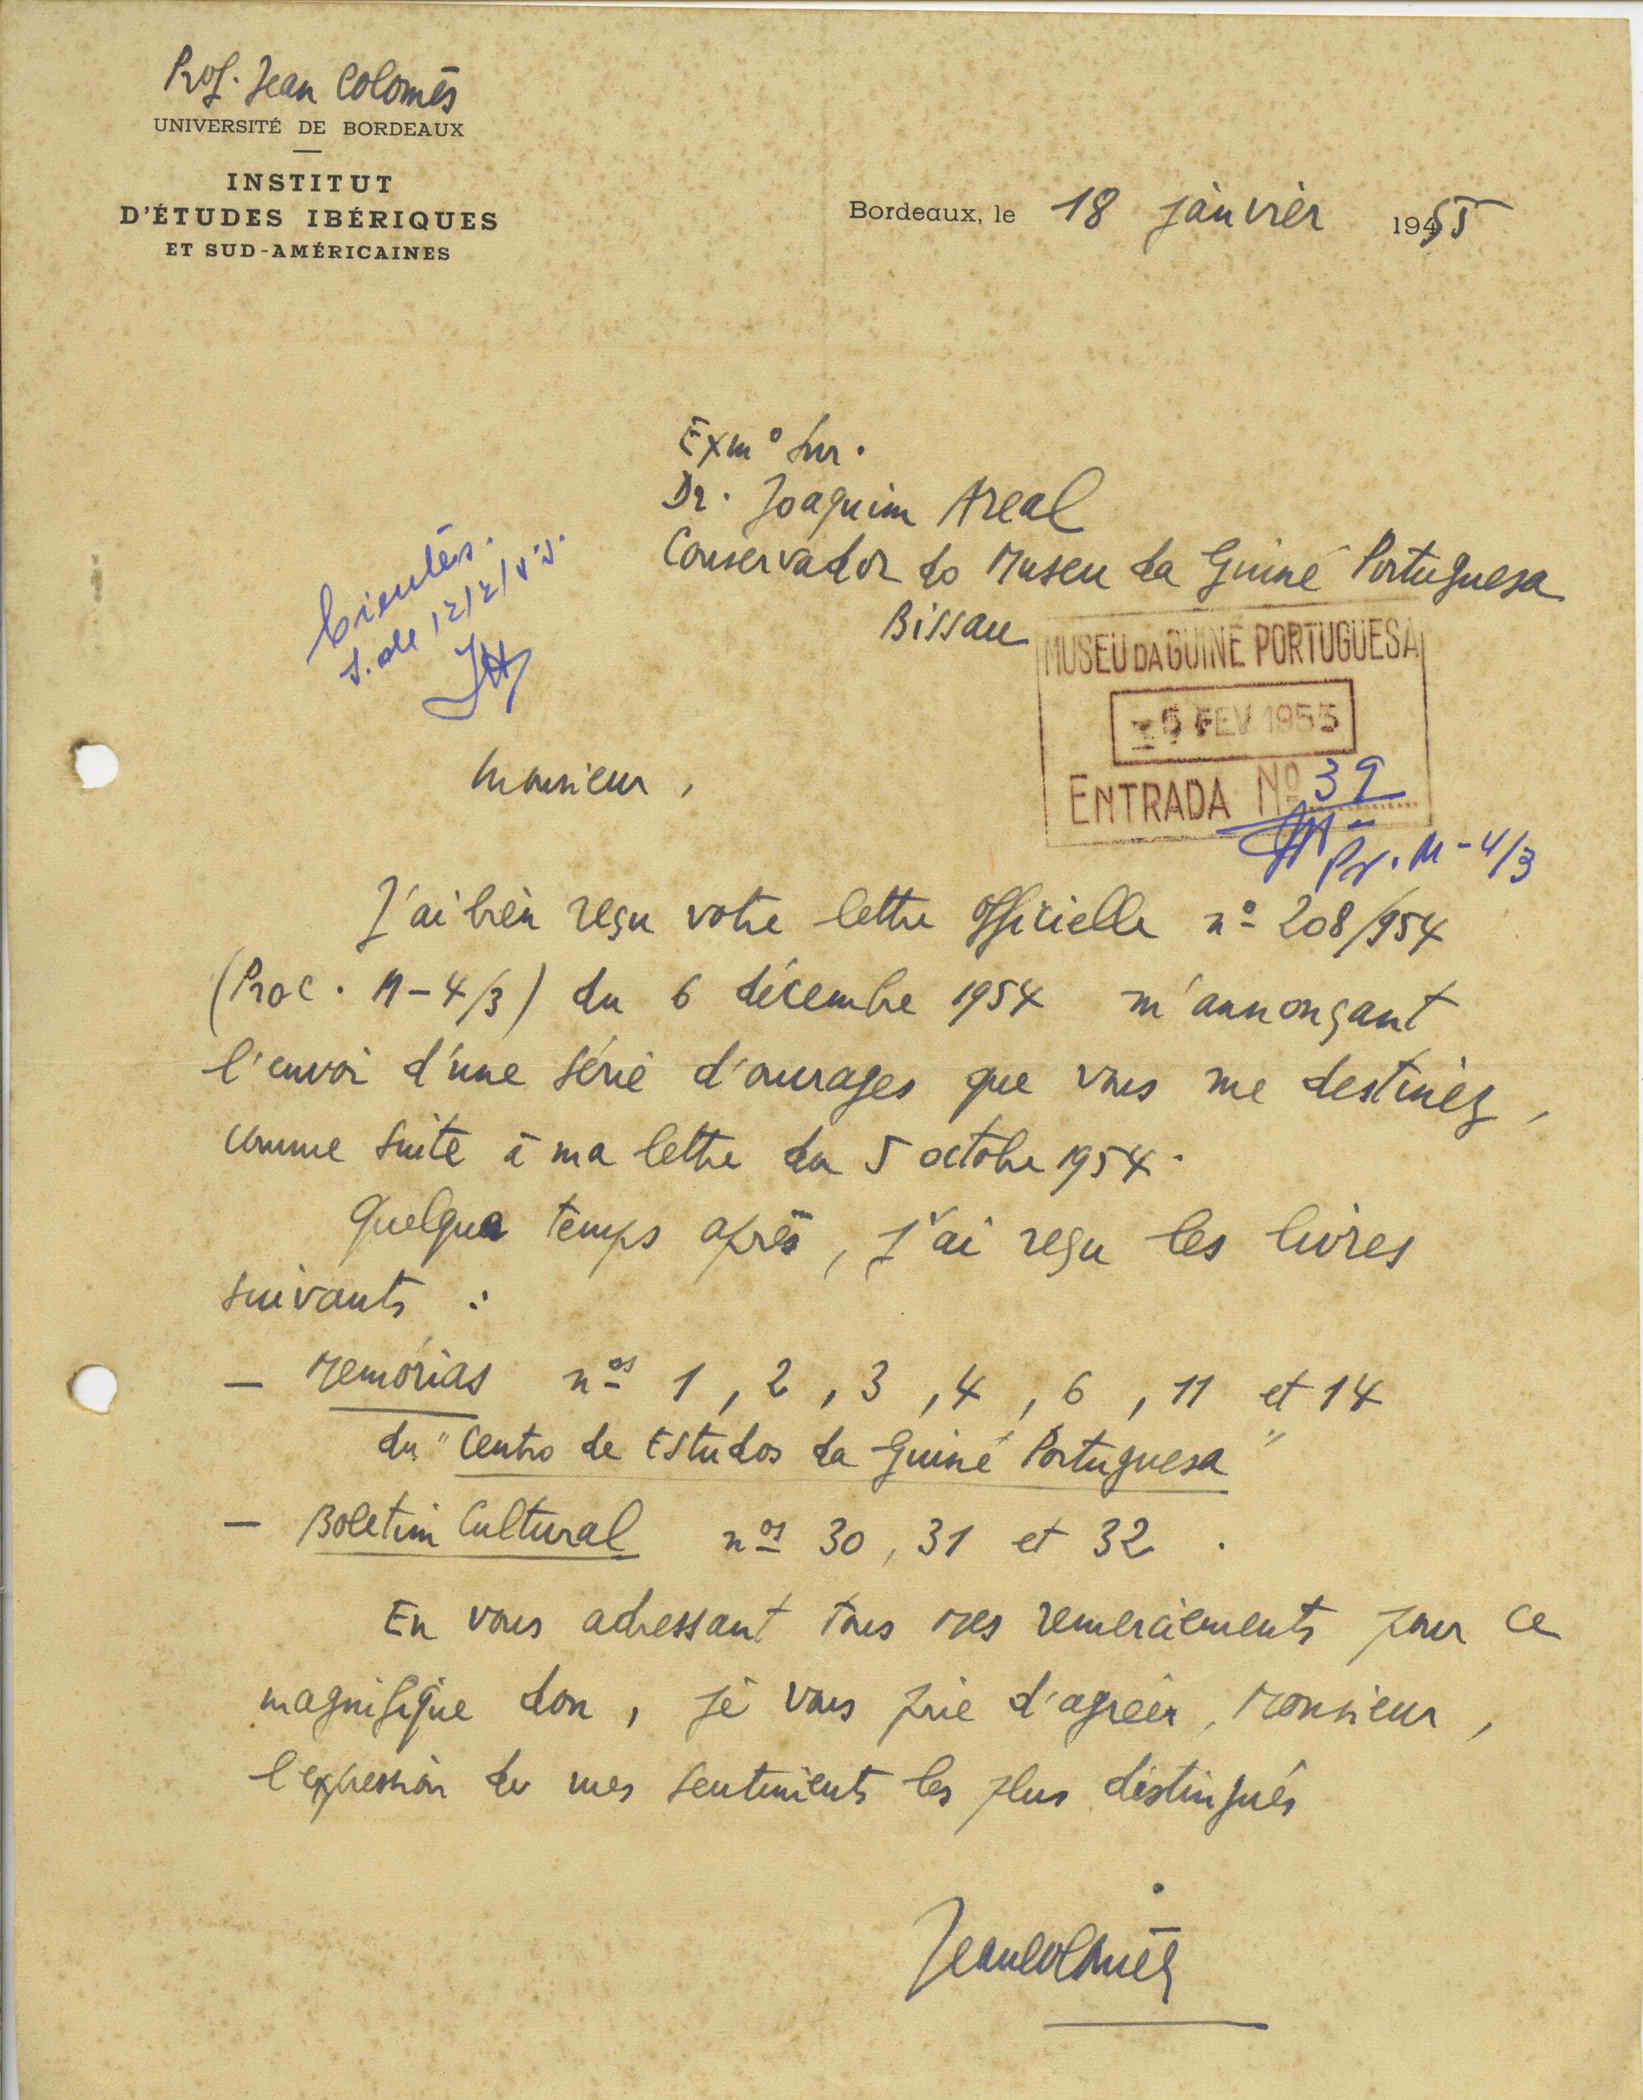 Prof. Jean Colomès
UNIVERSITÉ DE BORDEAUX
INSTITUT
D'ÉTUDES IBÉRIQUES
ET SUD-AMÉRICAINES
Bordeaux, le 18 janvier 1955
Exmº Snr.
Dr. Joaquim Areal
Conservador do Museu da Guiné Portuguesa
Bissau
MUSEU DA GUINÉ PORTUGUESA
5 FEV 1955
ENTRADA Nº 39
Pr. M-4/3
12/2/55.
Monsieur,
J'ai bien reçu votre lettre officielle nº 208/954
(Proc. M-4/3) du 6 décembre 1954 m'annonçant
l'envoi d'une série d'ouvrages que vous me destiniez,
comme suite à ma lettre du 5 octobre 1954.
Quelque temps après, j'ai reçu les livres
suivants :
- Memórias nºs 1, 2, 3, 4, 6, 11 et 14
du "Centro de Estudos da Guiné Portuguesa"
- Boletim Cultural nºs 30, 31 et 32.
En vous adressant tous mes remerciements pour ce
magnifique don, je vous prie d'agréer, Monsieur,
l'expression de mes sentiments les plus distingués
Jean Colomès